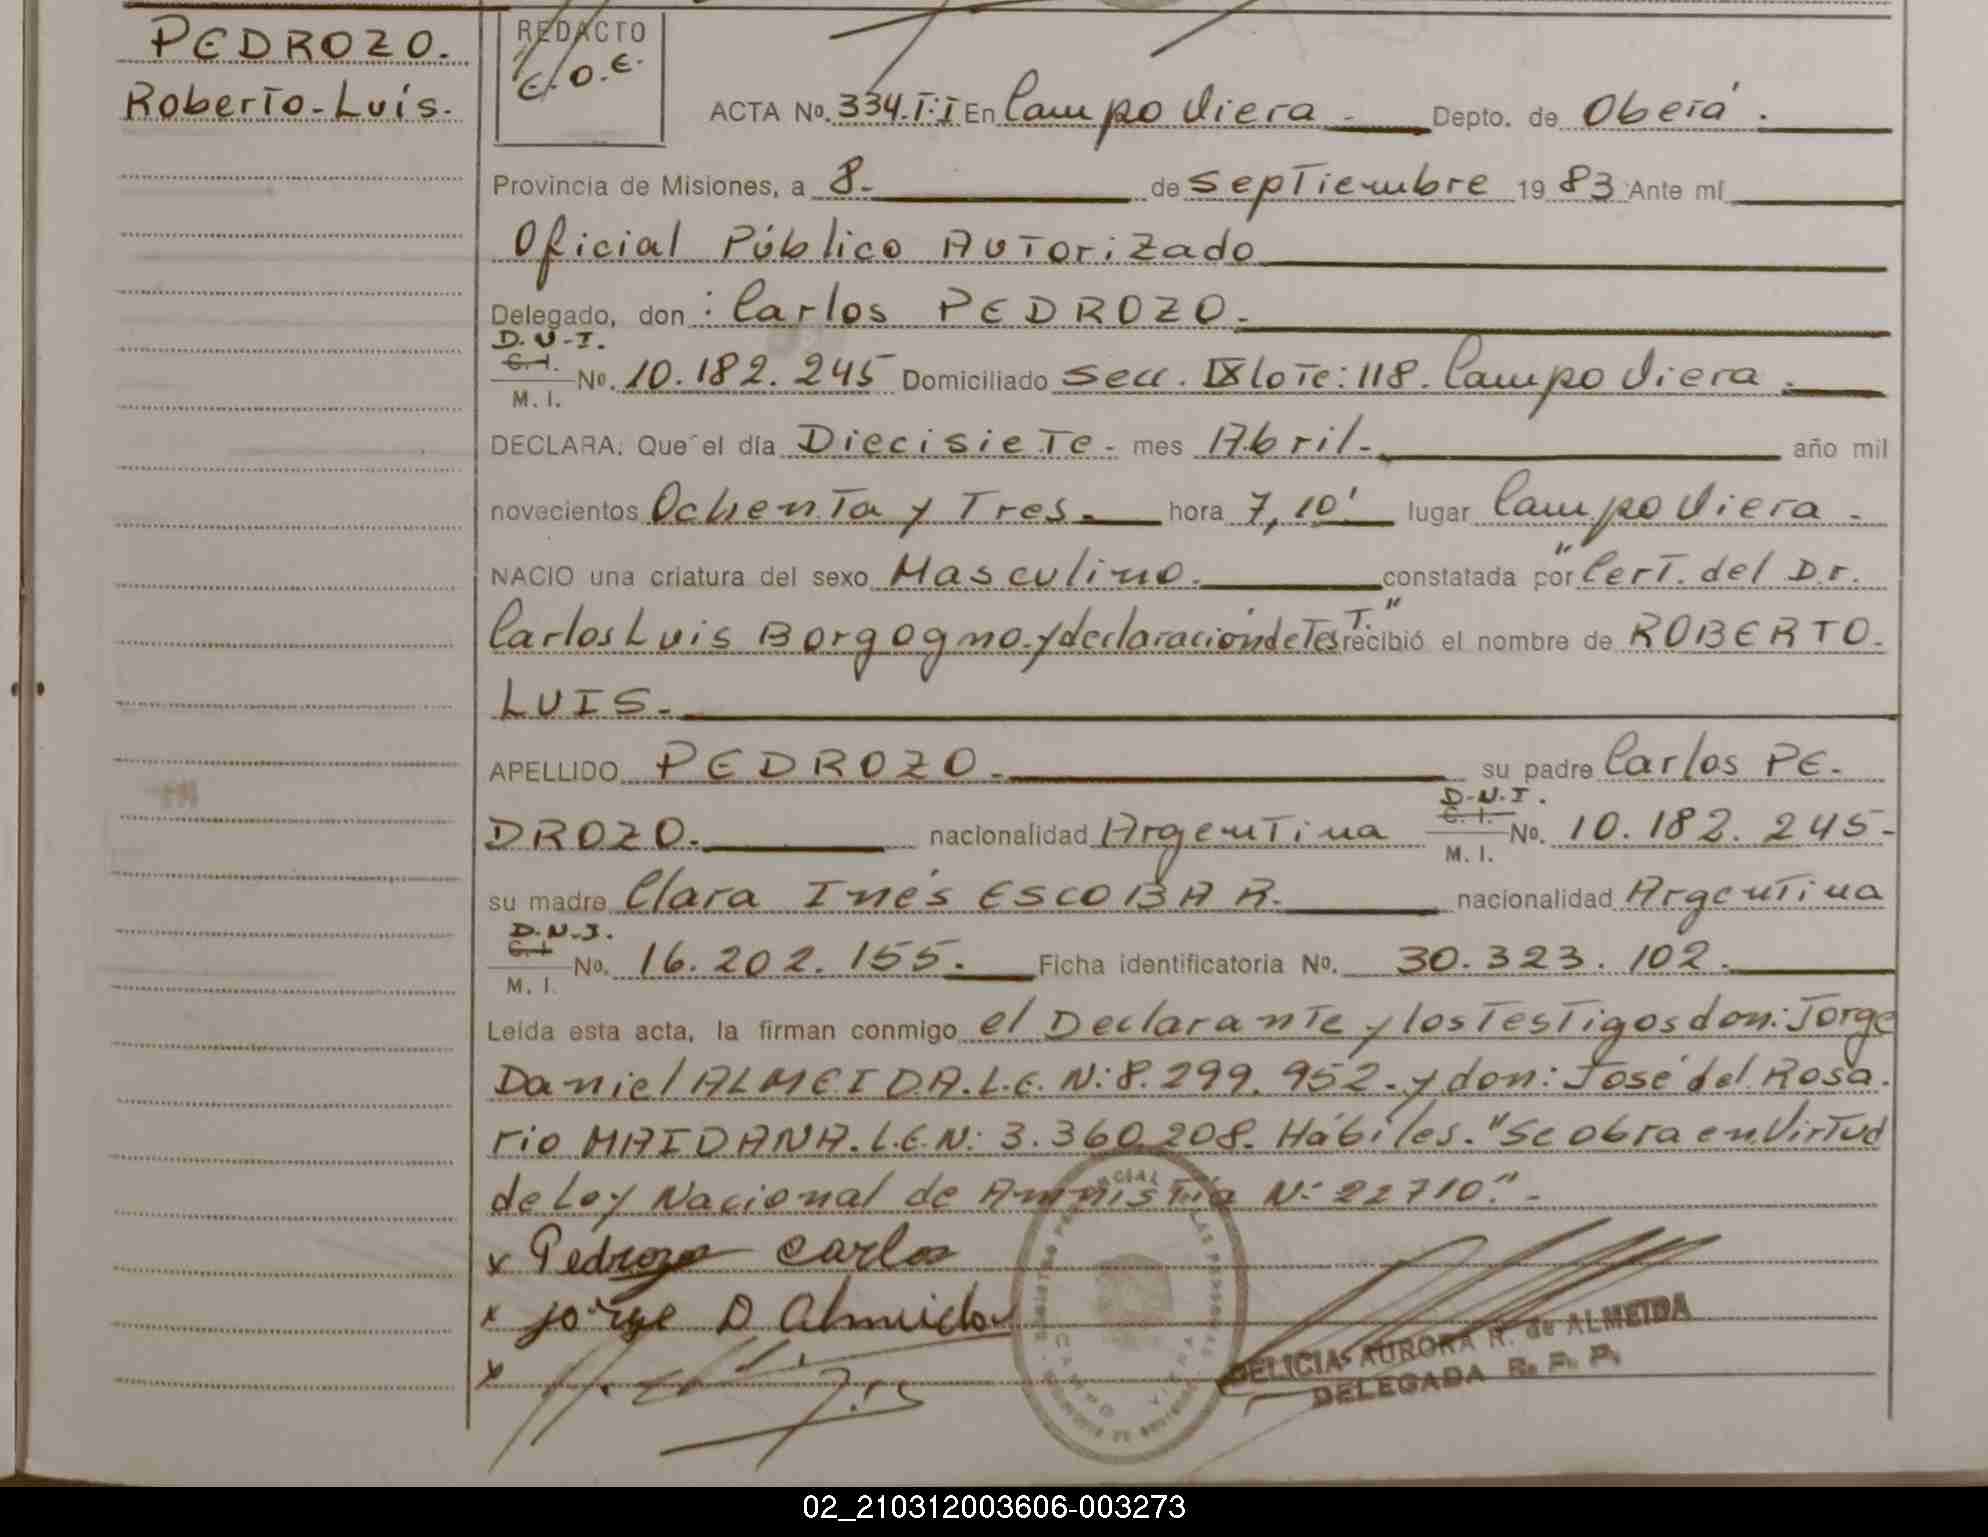 PEDROZO.
Roberto-Luis.
REDACTO
E.O.E.
ACTA No. 334.T:I En Campo Viera - Depto. de Oberá.
Provincia de Misiones, a 8. de Septiembre 19 83 Ante mí
Oficial Público Autorizado
Delegado, don: Carlos PEDROZO.
D.N.I.
C.I.
M.I. No. 10.182.245 Domiciliado Secc. IX Lote: 118. Campo Viera.
DECLARA: Que el día Diecisiete. mes Abril. año mil
novecientos Ochenta y Tres. hora 7,10' lugar Campo Viera.
NACIO una criatura del sexo Masculino. constatada por "Cert. del Dr.
Carlos Luis Borgogno. y declaración de Test." recibió el nombre de ROBERTO.
LUIS.
APELLIDO PEDROZO. su padre Carlos PE-
D.N.I.
C.I.
DROZO. nacionalidad Argentina M.I. No. 10.182.245-
su madre Clara Inés ESCOBAR. nacionalidad Argentina
D.N.I.
C.I.
M.I. No. 16.202.155. Ficha identificatoria No. 30.323.102.
Leída esta acta, la firman conmigo el Declarante y los Testigos don: Jorge
Daniel ALMEIDA. L.E. N: 8.299.952. y don: José del Rosa-
rio MAIDANA. L.E. N: 3.360.208. Hábiles. "Se obra en Virtud
de Ley Nacional de Amnistía N: 22710".-
x Pedrozo Carlos
x Jorge D Almeida
x
CAMPO VIERA
DELICIA AURORA R. de ALMEIDA
DELEGADA R. P. P.
02_210312003606-003273